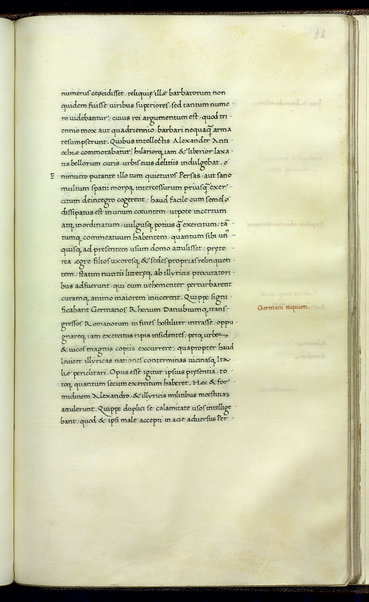 82
numerus cecidisset. reliquisse illo barbarorum non
quidem fuisse viribus superiores, sed tantum nume
ro videbantur; cuius rei argumentum est. quod tri
ennio mox aut quadriennio barbari nequaq̃ arma
resumpserunt. Quibus intellectis Alexander Anti
ochię commorabatur, hilariorq, iam & liberior laxa
tis bellorum curis. urbis eius delitiis indulgebat. o
nimvero putante illo tum quieturos Persas. aut sane
multum spatii morę, intercessurum priusq̃ exer
citum deintegro cogerent. haud facile cum semel
dissipatus est in unum coeuntem. utpote incertum
atq, inordinatum. vulgusq, potius q̃ exercitum. tã
tumq, commeatuum habentem. quantum sibi un
quisq, ad presentem usum domo attulisset. prete
rea ęgro filios uxoresq, & sedes proprias relinquen
tem. statim nuntii litterę, ab illyricis procuratori
bus adfuerunt. qui eum uehementer perturbarent
curamq, animo maiorem iniicerent. Quippe signi
ficabant Germanos Rhenum Danubiumq, trans
gressos Romanorum in fines hostiliter intrasse. oppu
gnareq, iam exercitus ripis insidentes. perq, urbes
& vicos magnis copiis excurrere. quapropter haud
leuiter illyricas nationes conterminas vicinasq, Ita
lię periclitari. Opus esse igitur ipsius presentia. to
toq, quantum secum exercitum haberet. Hęc & for
midinem Alexandro & illyricis militibus moestitiam
attulerunt. Quippe duplici se calamitate usos intellige
bant. quod & ipsi male accepti in acie adversus Per
Germani quum